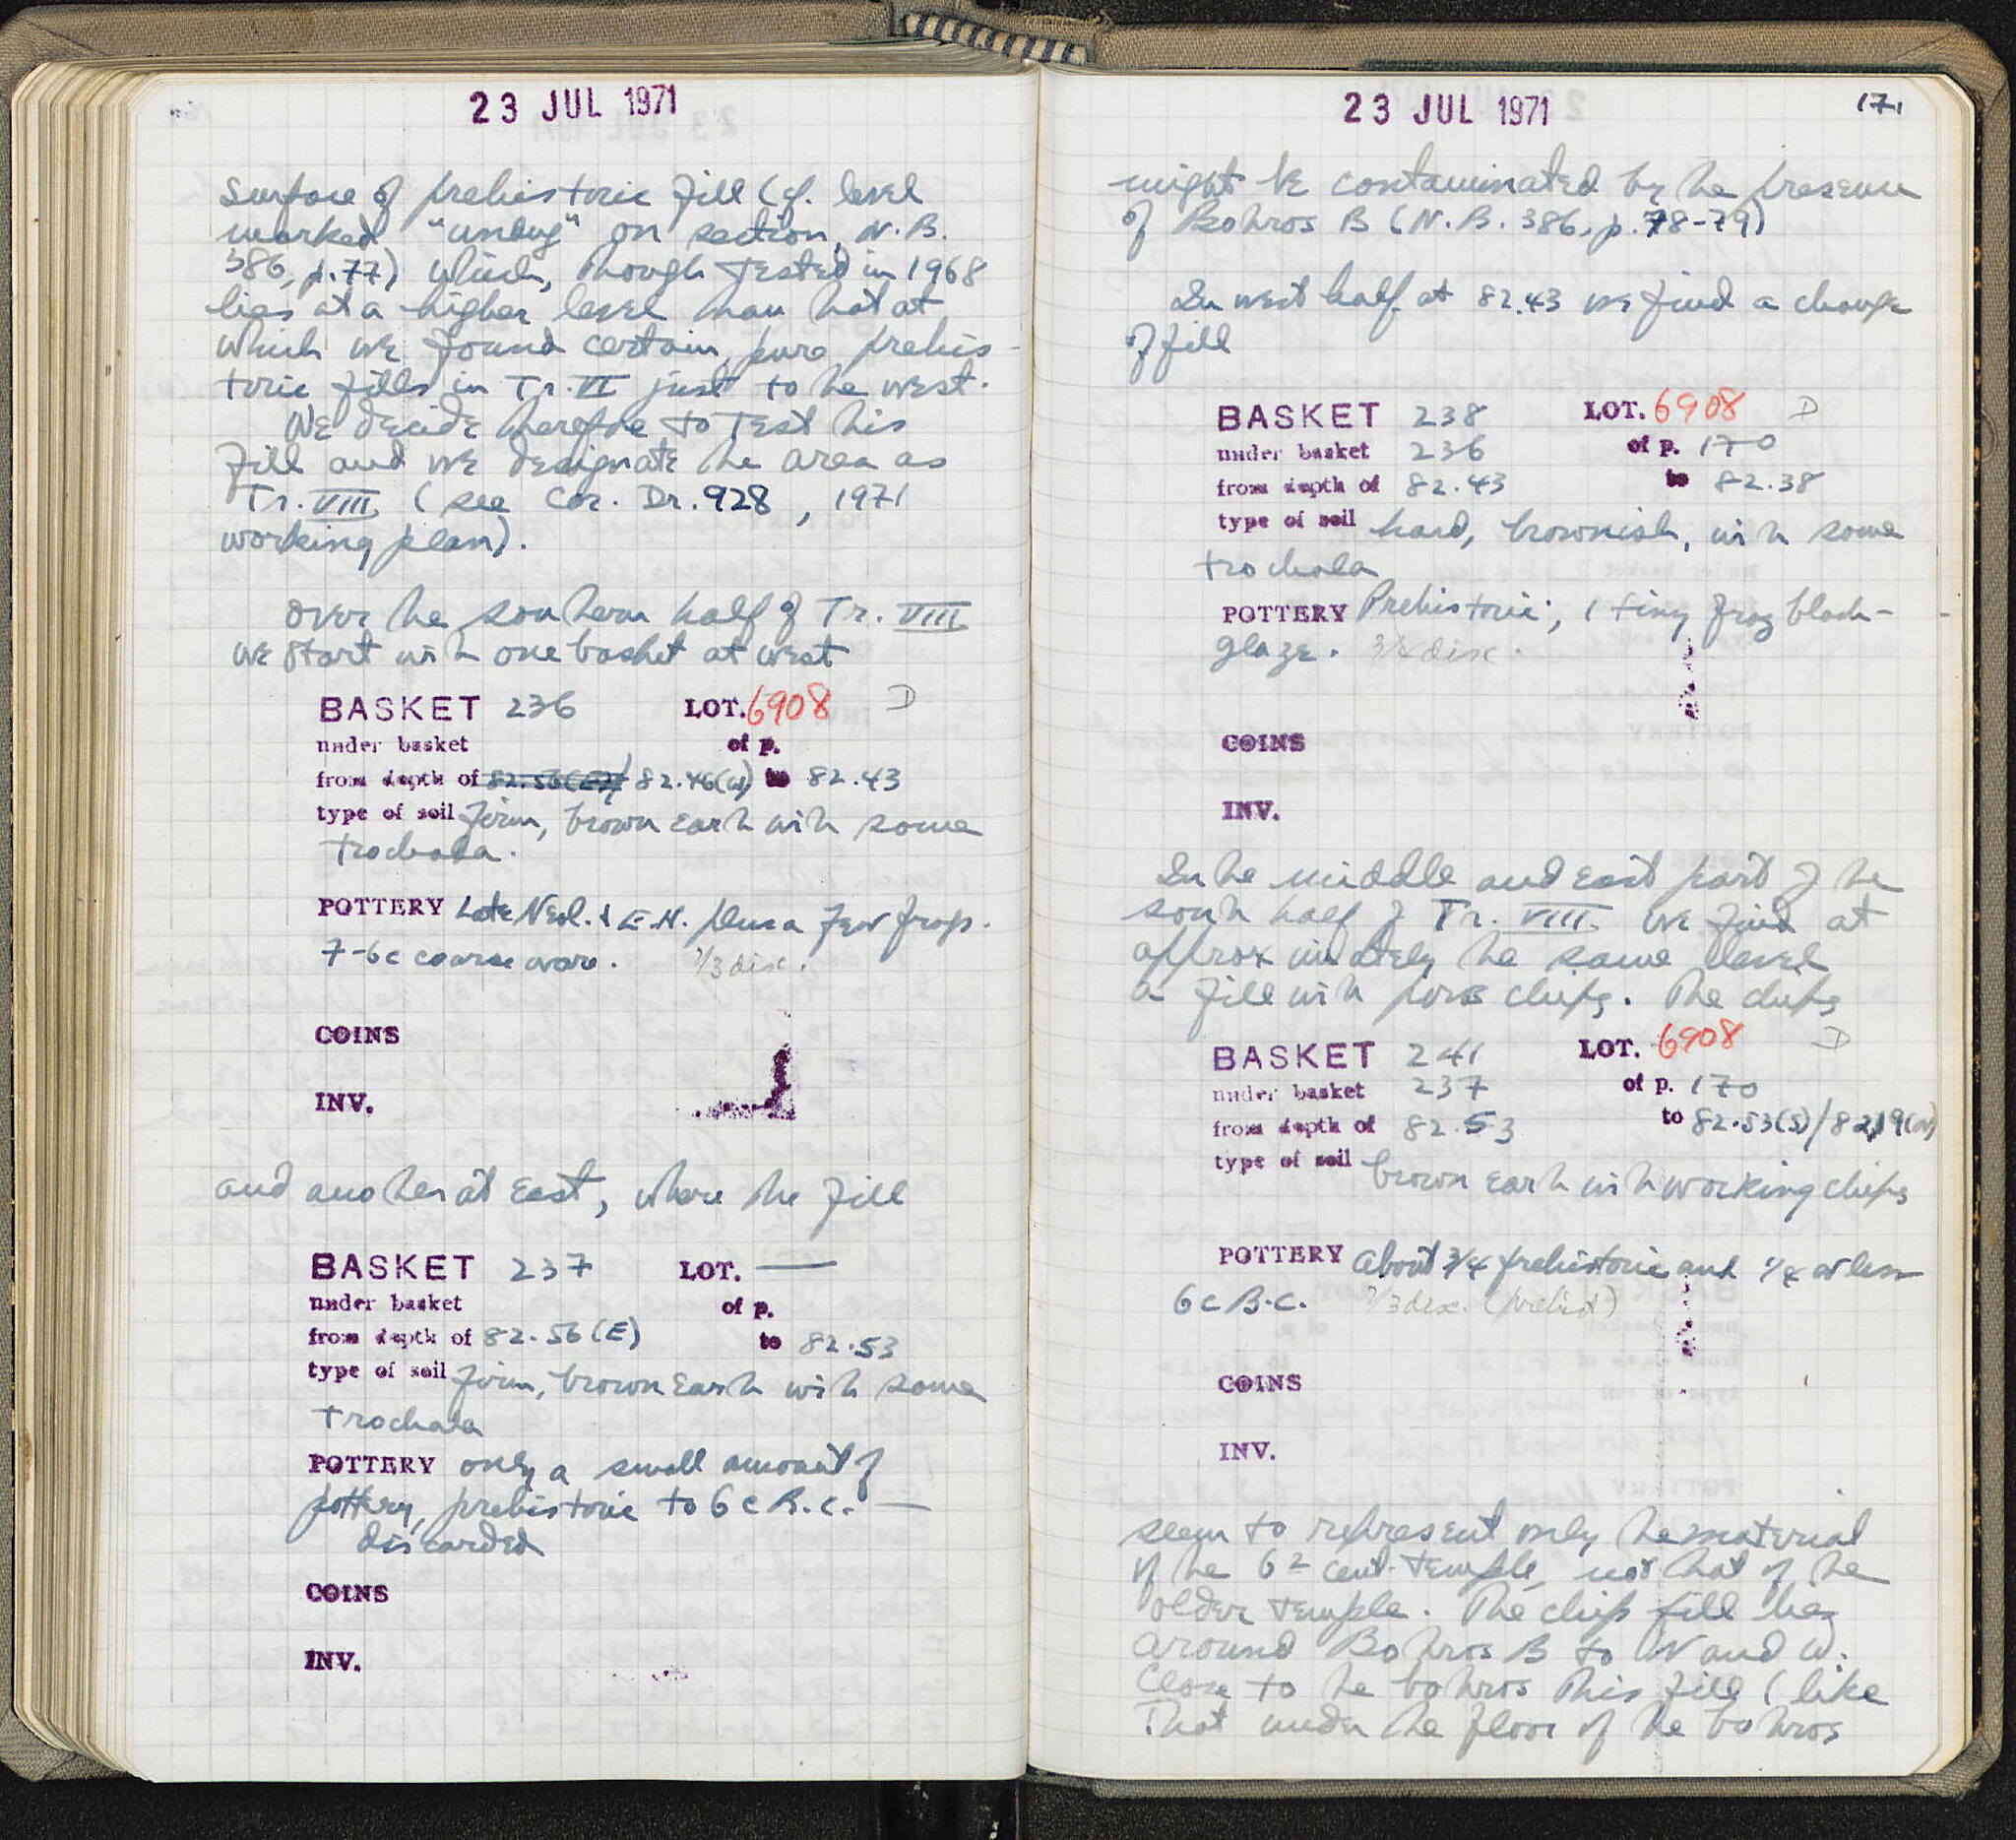 23 JUL 1971
surface of prehistoric fill (cf. level
marked "undug" on section, N.B.
386, p.77) which, though tested in 1968
lies at a higher level than that at
which we found certain, pure prehis-
toric fills in Tr. VI just to the west.
We decide therefore to test this
fill and we designate the area as
Tr. VIII (see Cor. Dr. 928, 1971
working plan).
Over the southern half of Tr. VIII
we start with one basket at west
BASKET 236 LOT. 6908 D
under basket of p.
from depth of 82.56(E) 82.46(W) to 82.43
type of soil firm, brown earth with some
trochala.
POTTERY Late Neol. & E.H. plus a few frags.
7-6c coarse ware. 2/3 disc.
COINS
INV.
and another at east, where the fill
BASKET 237 LOT. —
under basket of p.
from depth of 82.56 (E) to 82.53
type of soil firm, brown earth with some
trochala
POTTERY only a small amount of
pottery, prehistoric to 6c B.C. —
discarded
COINS
INV.
23 JUL 1971 171
might be contaminated by the presence
of Bothros B (N.B. 386, p. 78-79)
In west half at 82.43 we find a change
of fill
BASKET 238 LOT. 6908 D
under basket 236 of p. 170
from depth of 82.43 to 82.38
type of soil hard, brownish, with some
trochala
POTTERY Prehistoric; 1 tiny frag black-
glaze. 3/4 disc.
COINS
INV.
In the middle and east part of the
south half of Tr. VIII we find at
approximately the same level
a fill with poros chips. The chips
BASKET 241 LOT. 6908 D
under basket 237 of p. 170
from depth of 82.53 to 82.53(S)/82.19(N)
type of soil brown earth with working chips
POTTERY about 3/4 prehistoric and 1/4 or less
6c B.C. 2/3 disc. (prehist)
COINS
INV.
seem to represent only the material
of the 6th cent. temple, not that of the
older temple. The chip fill lies
around Bothros B to N and W.
Close to the bothros this fill (like
that under the floor of the bothros